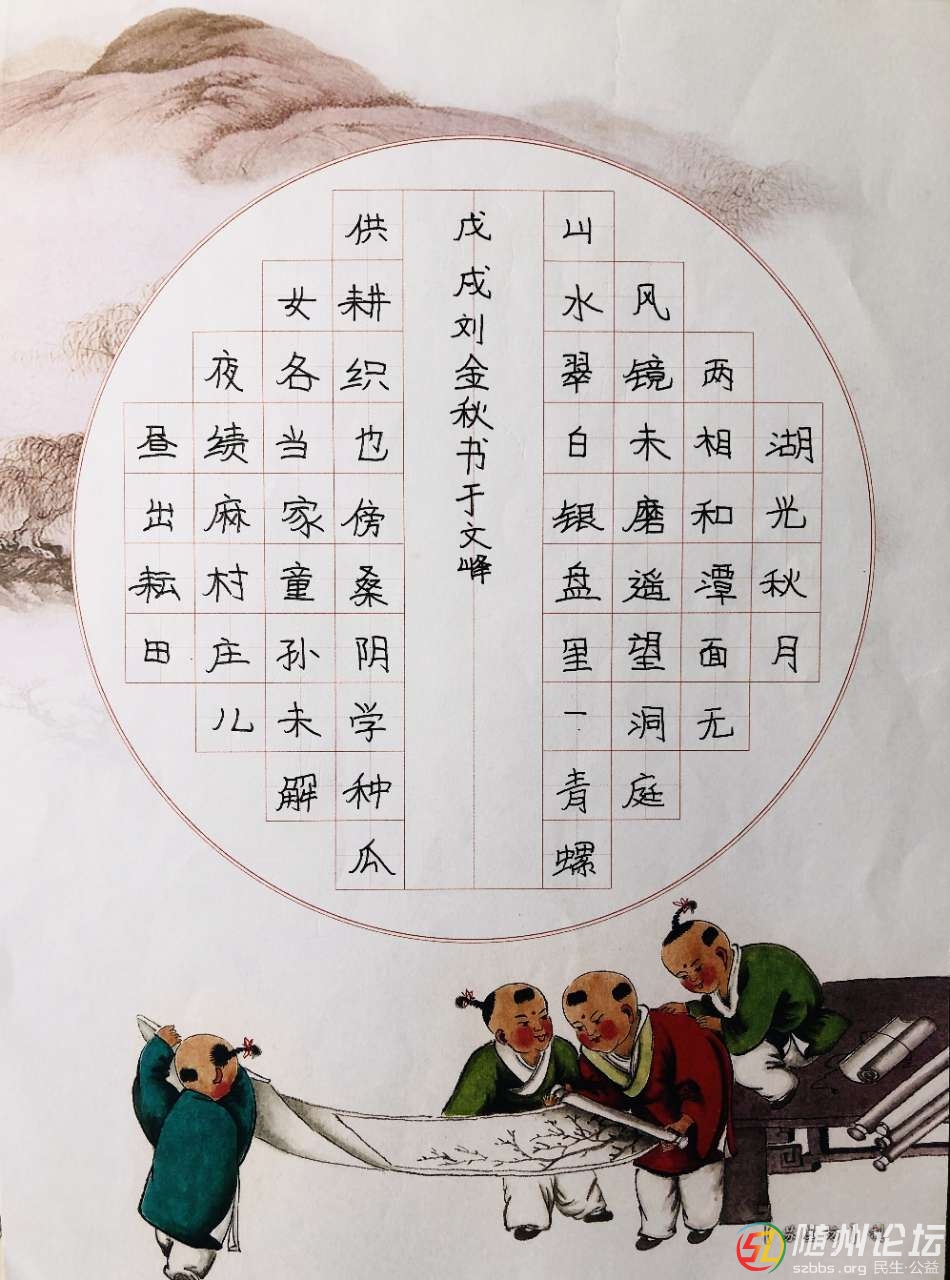 湖光秋月
两相和潭面无
风镜未磨遥望洞庭
山水翠白银盘里一青螺
昼出耘田
夜绩麻村庄儿
女各当家童孙未解
供耕织也傍桑阴学种瓜
戊戌刘金秋书于文峰
随州论坛
szbbs.org 民生·公益